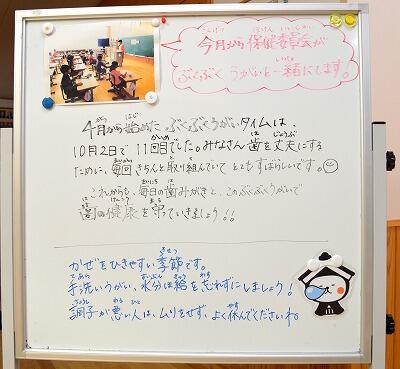 今月から保健委員会が
ぶくぶくうがいを一緒にします。
4月から始めた、ぶくぶくうがいタイムは、
10月2日で11回目でした。みなさん歯を丈夫にする
ために、毎回きちんと取り組んでいてとてもすばらしいです。
これからも、毎日の歯みがきと、このぶくぶくうがいで
歯の健康を守っていきましょう!!
かぜをひきやすい季節です。
手洗いうがい、水分補給を忘れずにしましょう!
調子が悪い人は、ムリをせず、よく休んでくださいね